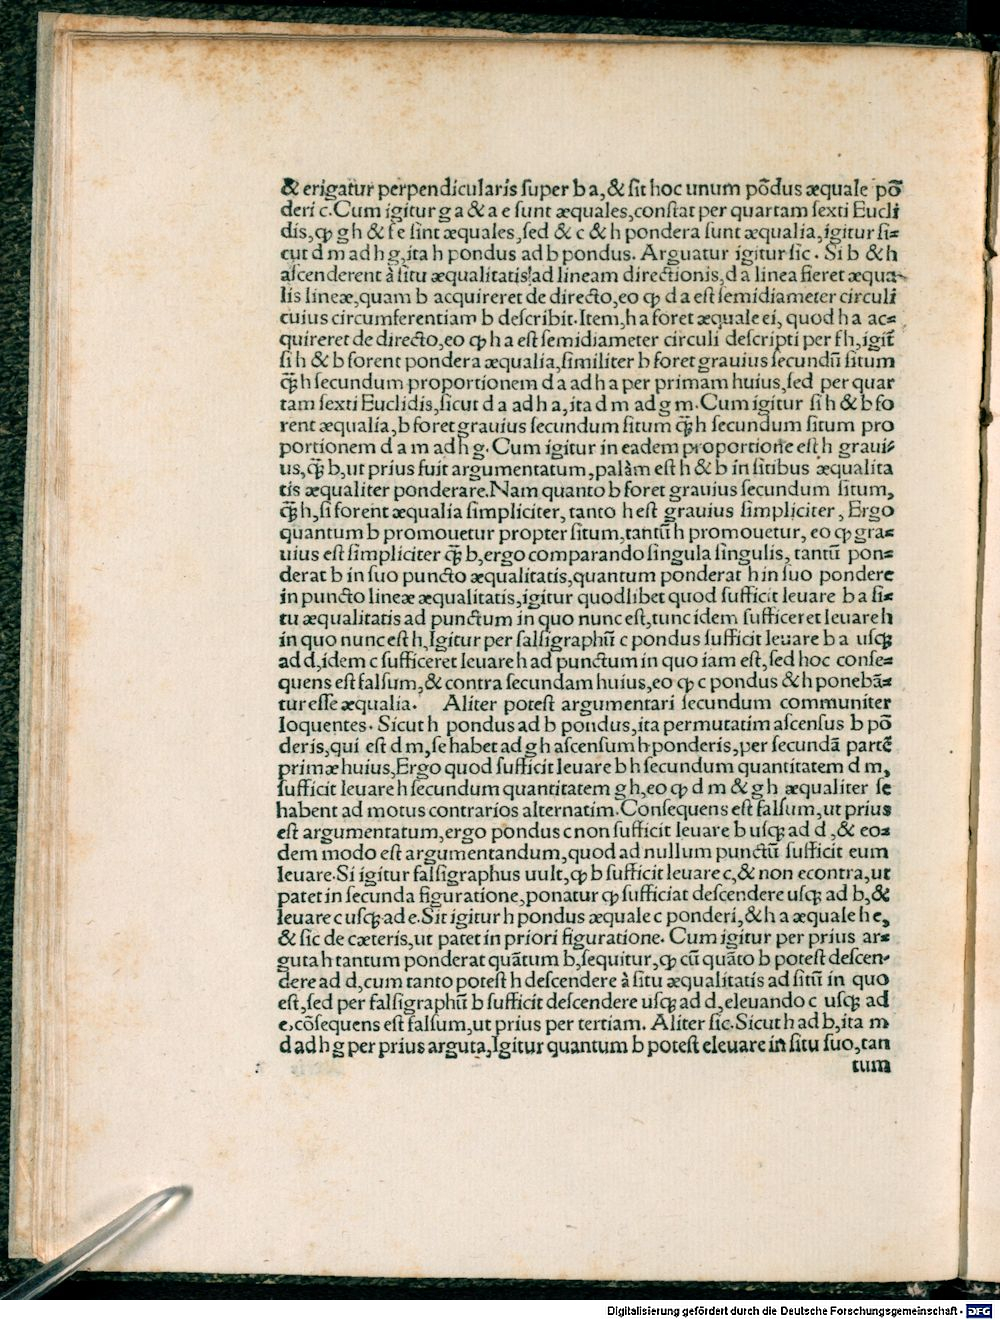 & erigatur perpendicularis ſuper b a, & ſit hoc unum põdus æquale põ
deri c. Cum igitur g a & a e ſunt æquales, conſtat per quartam ſexti Eucli
dis, ꝙ g h & f e ſint æquales, ſed & c & h pondera ſunt æqualia, igitur ſi⸗
cut d m ad h g, ita h pondus ad b pondus. Arguatur igitur ſic. Si b & h
aſcenderent à ſitu æqualitatis ad lineam directionis, d a linea fieret æqua⸗
lis lineæ, quam b acquireret de directo, eo ꝙ d a eſt ſemidiameter circuli
cuius circumferentiam b deſcribit. Item, h a foret æquale ei, quod h a ac⸗
quireret de directo, eo ꝙ h a eſt ſemidiameter circuli deſcripti per f h, igit᷑
ſi h & b forent pondera æqualia, ſimiliter b foret grauius ſecundũ ſitum
q̃ꝫ h ſecundum proportionem d a ad h a per primam huius, ſed per quar
tam ſexti Euclidis, ſicut d a ad h a, ita d m ad g m. Cum igitur ſi h & b fo
rent æqualia, b foret grauius ſecundum ſitum q̃ꝫ h ſecundum ſitum pro
portionem d a m ad h g. Cum igitur in eadem proportione eſt h graui⸗
us, q̃ꝫ b, ut prius fuit argumentatum, palàm eſt h & b in ſitibus æqualita
tis æqualiter ponderare. Nam quanto b foret grauius ſecundum ſitum,
q̃ꝫ h, ſi forent æqualia ſimpliciter, tanto h eſt grauius ſimpliciter, Ergo
quantum b promouetur propter ſitum, tantũ h promouetur, eo ꝙ gra⸗
uius eſt ſimpliciter q̃ꝫ b, ergo comparando ſingula ſingulis, tantũ pon⸗
derat b in ſuo puncto æqualitatis, quantum ponderat h in ſuo pondere
in puncto lineæ æqualitatis, igitur quodlibet quod ſufficit leuare b a ſi⸗
tu æqualitatis ad punctum in quo nunc eſt, tunc idem ſufficeret leuare h
in quo nunc eſt h, Igitur per falſigraphũ c pondus ſufficit leuare b a uſqꝫ
ad d, idem c ſufficeret leuare h ad punctum in quo iam eſt, ſed hoc conſe⸗
quens eſt falſum, & contra ſecundam huius, eo ꝙ c pondus & h ponebã⸗
tur eſſe æqualia. Aliter poteſt argumentari ſecundum communiter
loquentes. Sicut h pondus ad b pondus, ita permutatim aſcenſus b põ
deris, qui eſt d m, ſe habet ad g h aſcenſum h ponderis, per ſecundã partẽ
primæ huius, Ergo quod ſufficit leuare b h ſecundum quantitatem d m,
ſufficit leuare h ſecundum quantitatem g h, eo ꝙ d m & g h æqualiter ſe
habent ad motus contrarios alternatim. Conſequens eſt falſum, ut prius
eſt argumentatum, ergo pondus c non ſufficit leuare b uſqꝫ ad d, & eo⸗
dem modo eſt argumentandum, quod ad nullum punctũ ſufficit eum
leuare. Si igitur falſigraphus uult, ꝙ b ſufficit leuare c, & non econtra, ut
patet in ſecunda figuratione, ponatur ꝙ ſufficiat deſcendere uſqꝫ ad b, &
leuare c uſqꝫ ad e. Sit igitur h pondus æquale c ponderi, & h a æquale h e,
& ſic de cæteris, ut patet in priori figuratione. Cum igitur per prius ar⸗
guta h tantum ponderat quãtum b, ſequitur, ꝙ cũ quãto b poteſt deſcen⸗
dere ad d, cum tanto poteſt h deſcendere à ſitu æqualitatis ad ſitũ in quo
eſt, ſed per falſigraphũ b ſufficit deſcendere uſqꝫ ad d, eleuando c uſqꝫ ad
e, cõſequens eſt falſum, ut prius per tertiam. Aliter ſic. Sicut h ad b, ita m
d ad h g per prius arguta, Igitur quantum b poteſt eleuare in ſitu ſuo, tan
tum
Digitalisierung gefördert durch die Deutsche Forschungsgemeinschaft - DFG